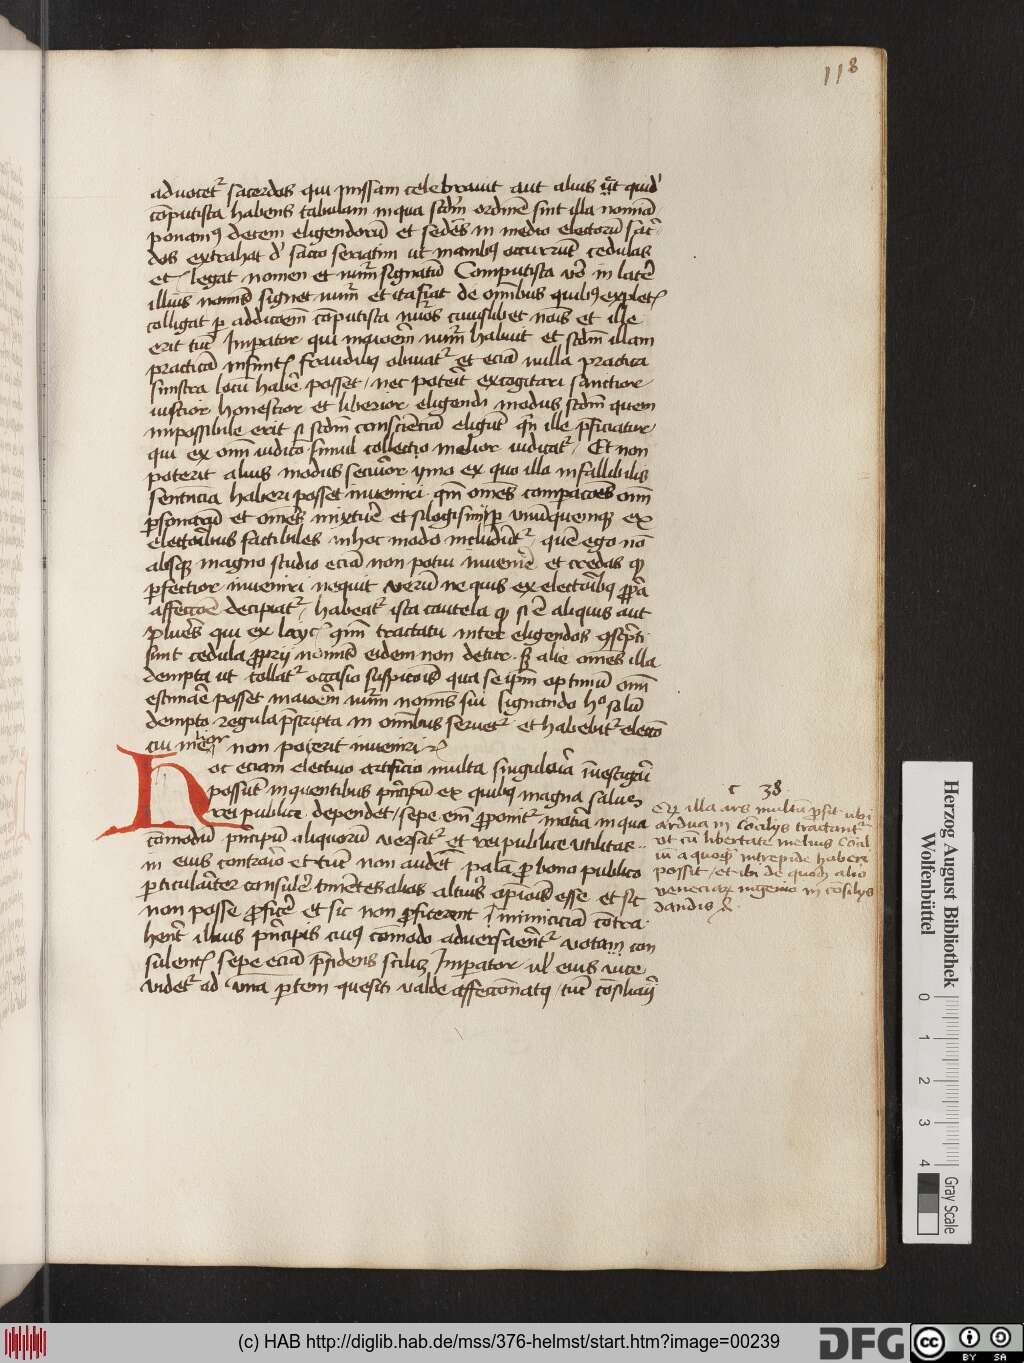 118
advocet(ur) sacerdos qui missam celebravit aut alius u(n)t quid(em)
co̅putista habens tabulam in qua sc̅dm ordine̅ sint illa no̅i̅a
ponam(us) decem eligendoru̅ et sedes in medio electoru̅ sac(er)
dos extrahat d(e) sacco seriatim ut manib(us) occurru̅t cedulas
et legat nomen et nu̅m signatu̅ Computista v(er)o in lat(er)e
illius no̅i̅s signet nu̅m et ita fiat de o̅i̅bus quib(us) explet(is)
colligat p(er) addic̅o̅em co̅putista nu̅os cuiuslibet no̅i̅s et ille
erit tu̅c Imp(er)ator qui maiore̅ nu̅m habuit et sc̅dm illam
practica̅ infinit(is) fraudib(us) obviat(ur) et ecia̅ nulla practica
sinistra locu̅ habe̅ posset / nec poterit excogitari sanctior
iustior honestior et liberior eligendi modus sc̅dm quem
impossibile erit si sc̅dm conscie̅cia̅ eligu̅t q(ui)n ille p̅ficiatur
qui ex o̅i̅m iudicio simul collectio melior iudicat(ur) / Et non
poterit alius modus securior ymo ex quo illa infallibilis
sentencia haberi posset inveniri q̅m o̅e̅s compac̅o̅es o̅i̅m
p(er)sonaru̅ et o̅e̅s mixture̅ et silogismi p(er) unu̅quemque ex
electoribus factibiles in hoc modo includu̅t(ur) / que̅ ego no̅
absq(ue) magno studio ecia̅ non potui invenire et credas q(uod)
p(er)fectior inveniri nequit Veru̅ ne quis ex electorib(us) p(ro)p(ri)a
affecc̅o̅e decipiat(ur) / habeat(ur) ista cautela q(uod) si e̅ aliquis aut
plures qui ex laycis q̅m tractatu inter eligendos co̅sc(ri)pti
sunt cedula p(ro)prij no̅i̅s eidem non detur s(ed) alie o̅e̅s illa
dempta ut tollat(ur) occasio suspic̅o̅is qua se ip̅m optimu̅ o̅i̅m
estimare posset maiore̅ nu̅m no̅i̅s sui signando hoc solu̅
dempto regula p̅scripta in o̅i̅bus servet(ur) et habebit(ur) electio
cui melior non poterit inveniri
Hoc eciam electivo artificio multa singularia i̅vestigari
possunt in quentibus principu̅ ex quib(us) magna salus
rei publice dependet / sepe em̅ p(ro)ponit(ur) materia in qua
co̅modu̅ principu̅ aliquoru̅ versat(ur) et rei publice utilitas
in eius contrario et tu̅c non audent pala̅ p(ro) bono publico
p(ar)ticulariter consulere timentes alios alterius opinionis esse et sic
non posse p(ro)ficere et sic non p(ro)ficerent i̅ inimicicia̅ co̅tra
herent illius principis cuius co̅modo adversarent(ur) votam con
sulent(is) sepe ecia̅ p̅sidens scilic(et) Imp(er)ator vel eius vice
videt(ur) ad una̅ p(ar)tem quesiti valde affecc̅o̅natus / tu̅c consiliarij
c 38
Ex illa ars multu̅ p(ro)sit ubi
ardua in Co̅cilijs tractant(ur)
ut cu̅ libertate melius co̅sil
iu̅ a quoq(ue) intrepide haberi
possit / et ibi de quod(am) alio
veneciar(um) ingenio in co̅silijs
dandis &
Herzog August Bibliothek
Wolfenbüttel
0 1 2 3 4
Gray Scale
(c) HAB http://diglib.hab.de/mss/376-helmst/start.htm?image=00239
DFG
cc BY SA